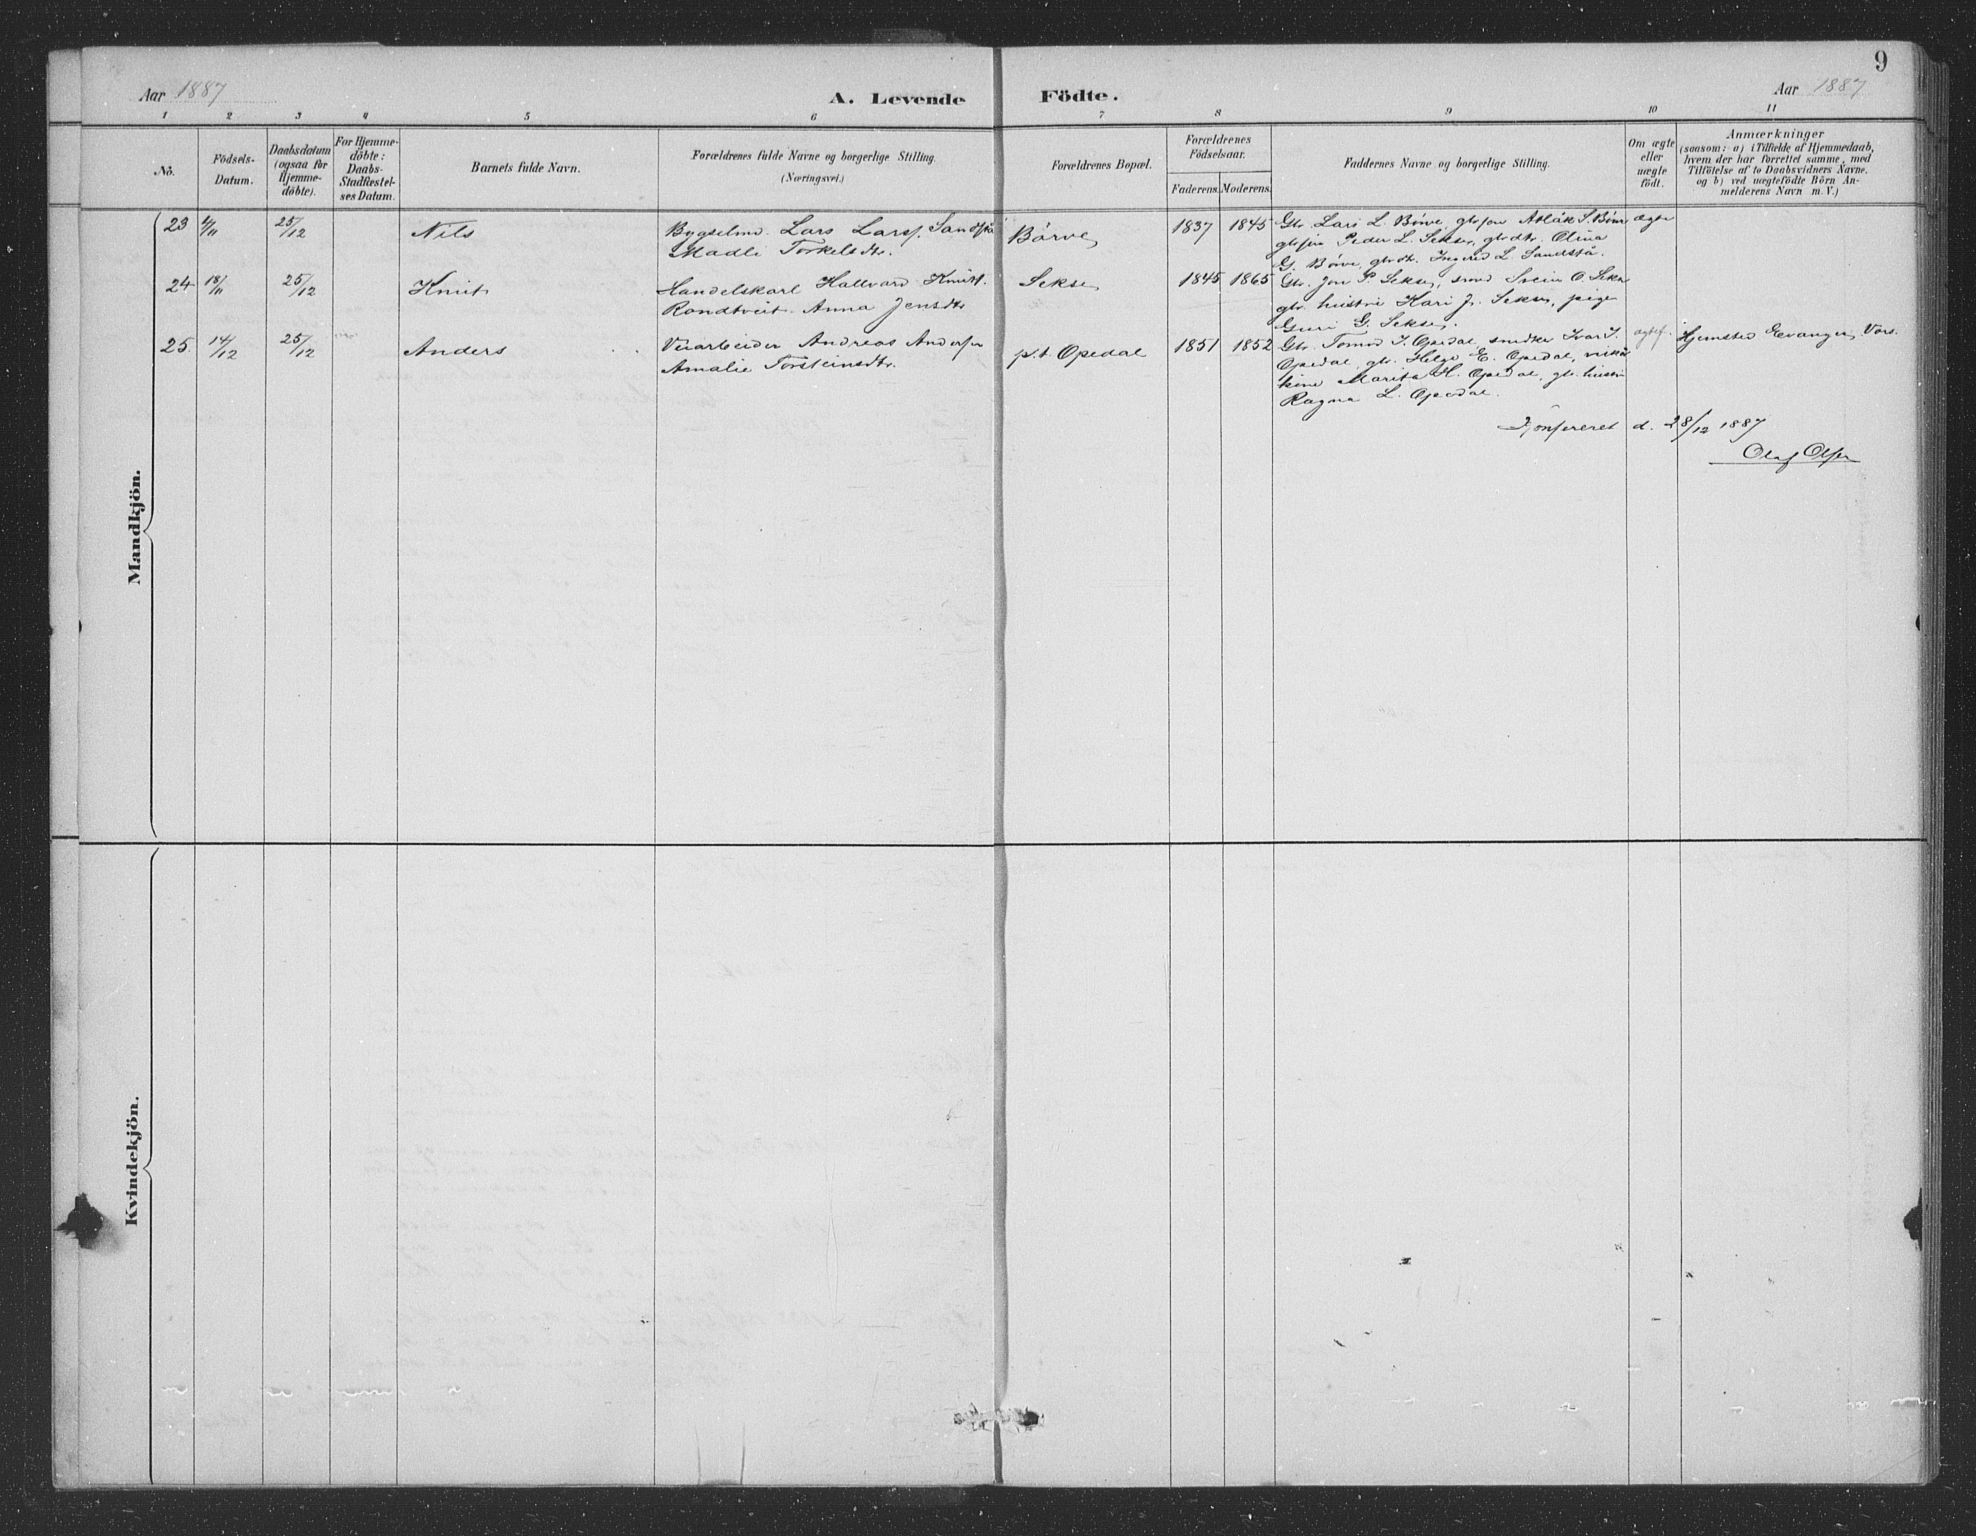 9
Aar 1887
A. Levende Födte.
Aar 1887
1 2 3 4 5 6 7 8 9 10 11
No.
Födsels-
Datum.
Daabsdatum
(ogsaa for
Hjemme-
döbte).
For Hjemme-
döbte:
Daabs-
Stadfæstel-
ses Datum.
Barnets fulde Navn.
Forældrenes fulde Navne og borgerlige Stilling.
(Næringsvei.)
Forældrenes Bopæl.
Forældrenes
Födselsaar.
Faderens. Moderens.
Faddernes Navne og borgerlige Stilling.
Om ægte
eller
uægte
födt.
Anmærkninger
(saasom: a) i Tilfælde af Hjemmedaab,
hvem der har forrettet samme, med
Tilföielse af to Daabsvidners Navne.
og b) ved uægtefödte Börn An-
melderens Navn m. V.)
Mandkjön.
23 25/12 Nils
Bygselmd. Lars Larss.
Madli Torkelsdtr.
Børve 1837 1845
Gbr. Lars L. Børve, gbrsøn Aslak S. Børve
gbrsøn Peder L. Sekse, gbrdtr. Olina
G. Børve, gbrdtr. Ingerid L. Sandstå.
ægte
24 18/11 25/12 Knut
Handelskarl Hallvard Knuts.
Rondtveit. Anna Jensdtr
Sekse 1845 1865
Gbr. Jon P. Sekse, smed Svein O. Sekse
gbr. hustru Kari J. Sekse, pige
Guri G. Sekse.
25. 14/12 25/12 Anders
Veiarbeider Andreas Andersen
Amalie Torsteinsdtr.
p.t. Opedal 1851 1852
Gbr. Tomod I. Opedal, snedker Ivar I.
Opedal, gbr. Helge E. Opedal,
Marita H. Opedal, gbr. hustru
Ragna L. Opedal.
ægtef.
Hjemsted Evanger, Vors.
Konfereret d. 28/12 1887
Olaf Olsen
Kvindekjön.